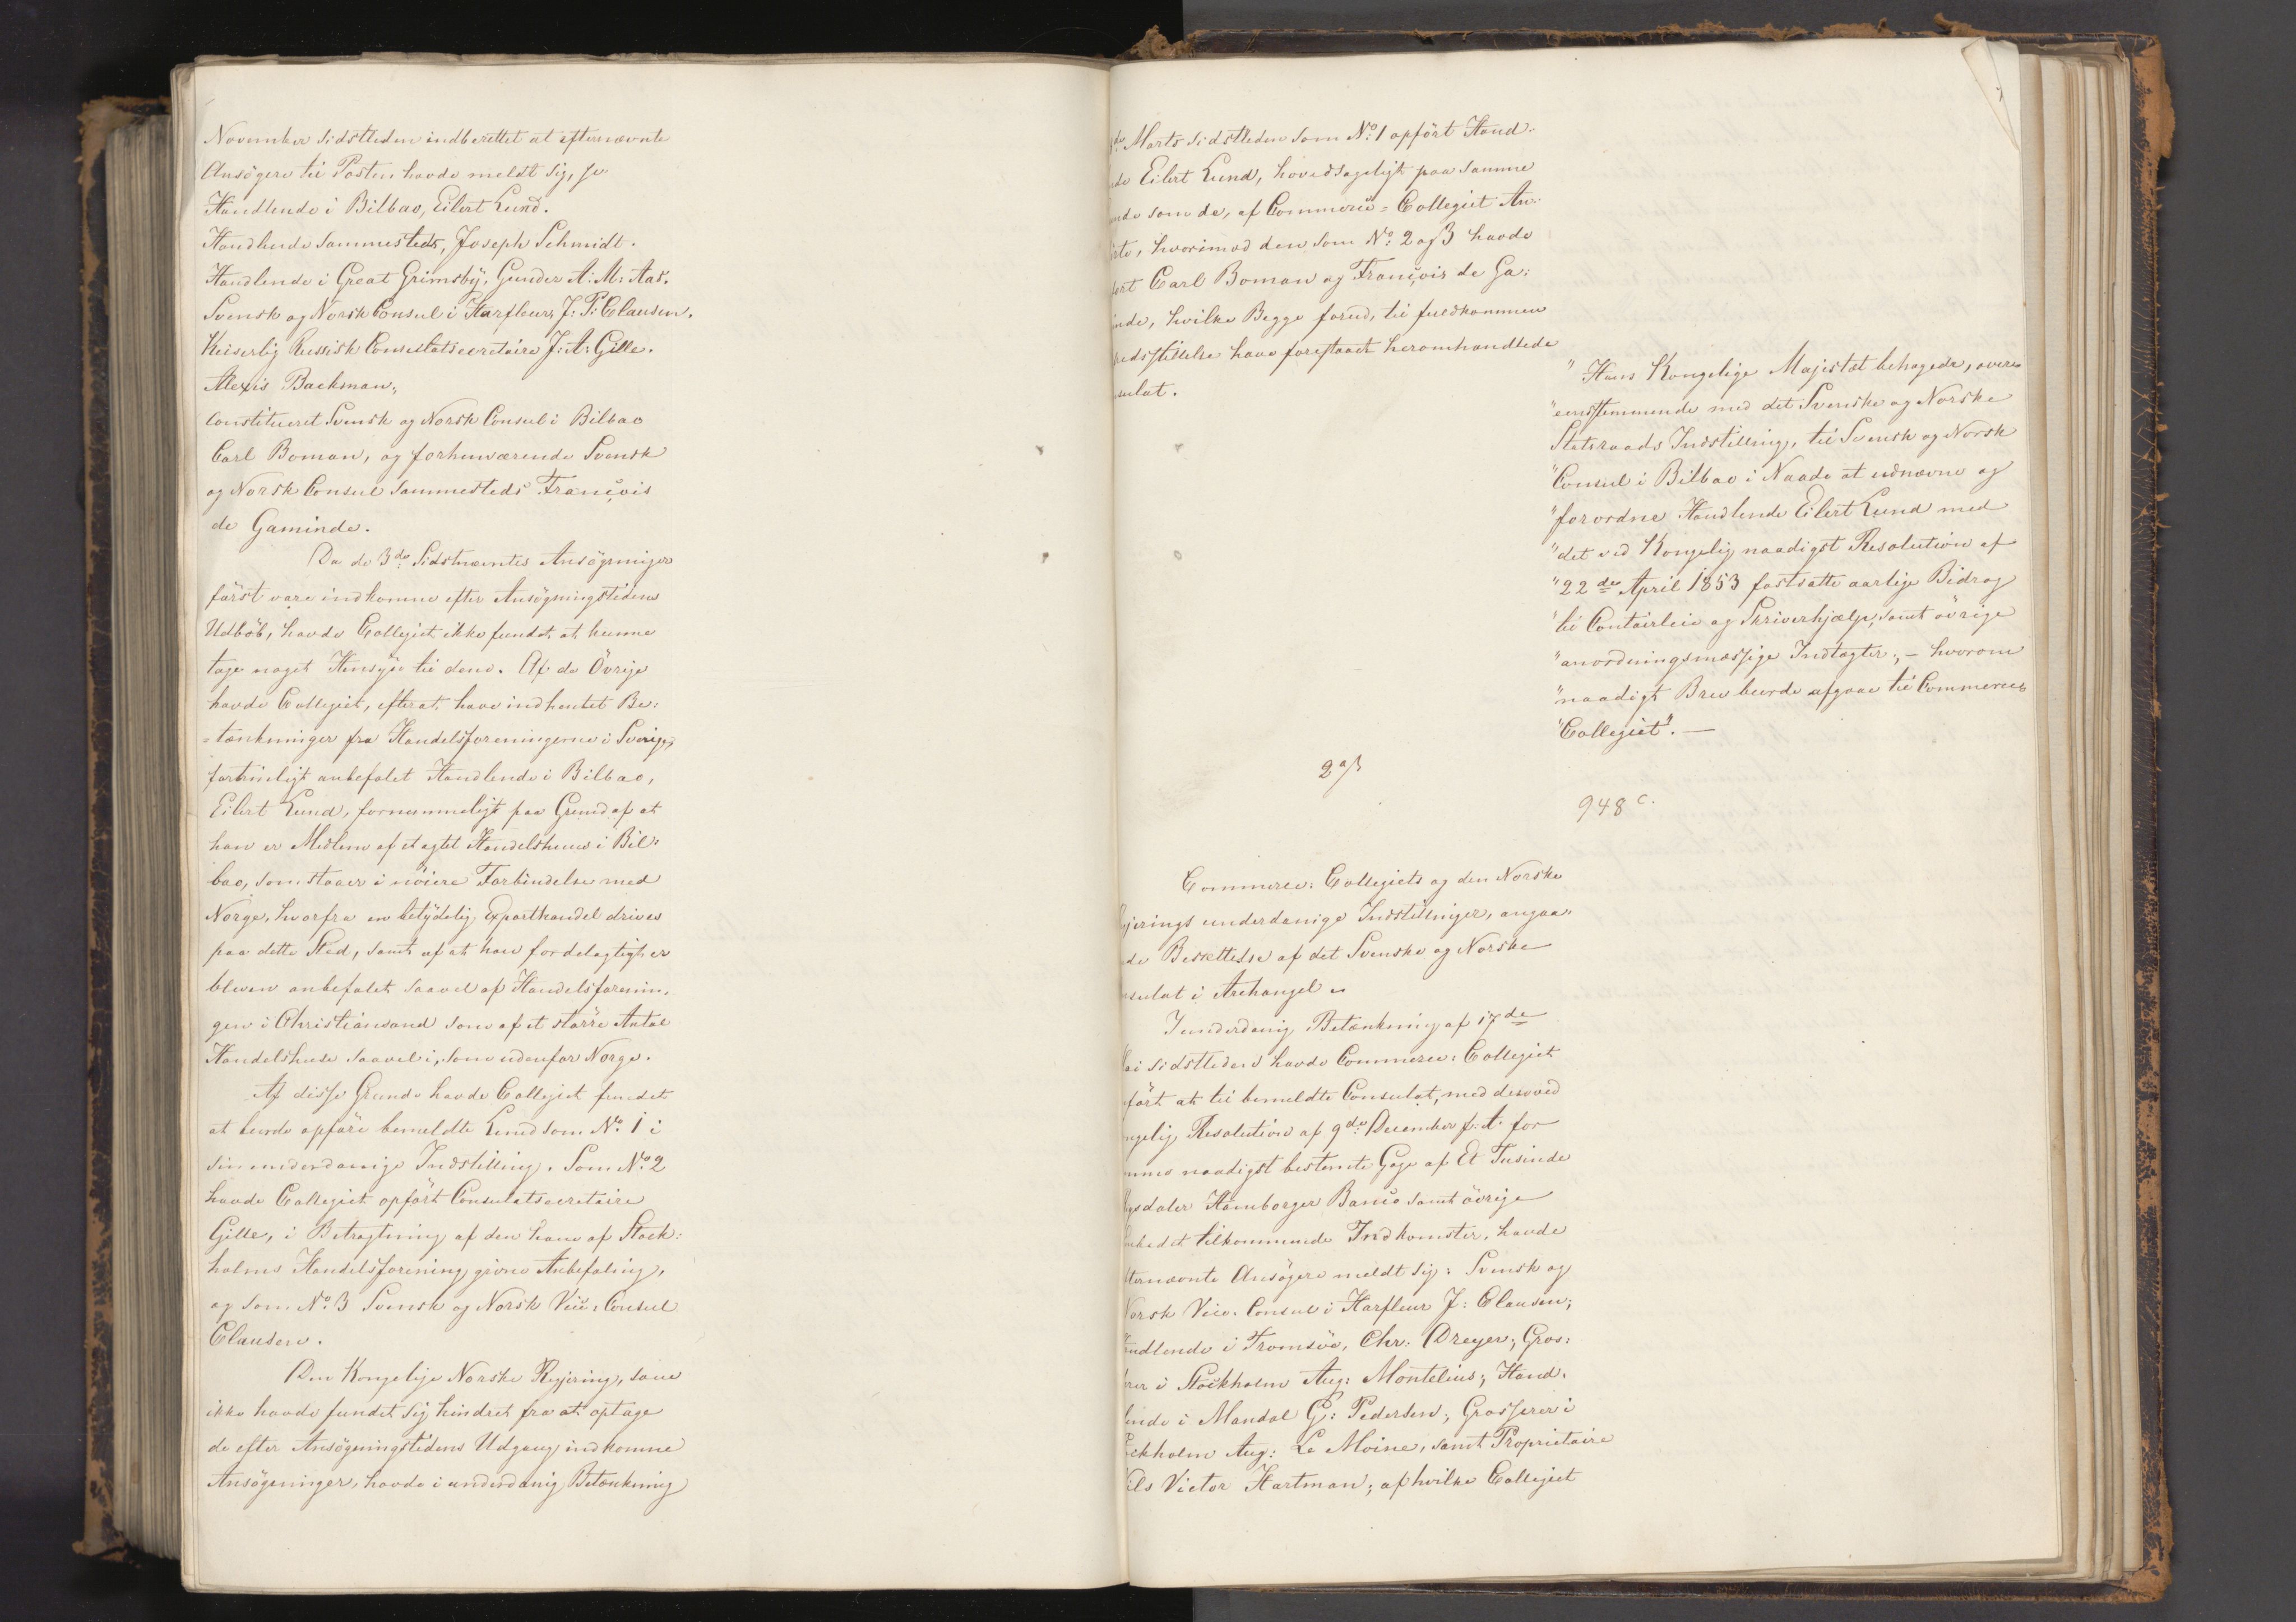 November sidstleden indberettet at efternævnte
Ansögere til Posten havde meldt sig,
Handlende i Bilbao, Eilert Lund.
Handlende sammesteds, Joseph Schmidt.
Handlende i Great Grimsby, Gunder A: M: Aas.
Svensk og Norsk Consul i Harfleur, J: P: Clausen.
Keiserlig Russisk Consulatsecretaire J: A: Gille.
Alexis Backman,
constitueret Svensk og Norsk Consul i Bilbao
Carl Boman, og forhenværende Svensk
og Norsk Consul sammesteds François
de Gaminde.
Da de 3de Sidstnævntes Ansögninger
först vare indkomne efter Ansögningstidens
Udlöb, havde Collegiet ikke fundet at kunne
tage noget Hensyn til dem. Af de Övrige
havde Collegiet, efterat have indhentet Be:
=tænkninger fra Handelsforeningerne i Sverige,
fortrinligt anbefalet Handlende i Bilbao,
Eilert Lund, fornemmeligt paa Grund af at
han er Medlem af et agtet Handelshuus i Bil:
bao, som staaer i nöiere Forbindelse med
Norge, hvorfra en betydelig Exporthandel drives
paa dette Sted, samt af at han fordelagtigt er
bleven anbefalet saavel af Handelsforenin,
gen i Christiansand som af et större Antal
Handelshuse saavel i, som udenfor Norge.
Af disse Grunde havde Collegiet fundet
at burde opföre bemeldte Lund som No. 1 i
sin underdanige Indstilling. Som No. 2
havde Collegiet opfört Consulatsecretaire
Gille, i Betragtning af den ham af Stock:
holms Handelsforening givne Anbefaling,
og som No. 3 Svensk og Norsk Vice: Consul
Clausen.
Den Kongelige Norske Regjering, som
ikke havde fundet sig hindret fra at optage
de efter Ansögningstidens Udgang indkomne
Ansögninger, havde i underdanig Betænkning
Marts sidstleden som No. 1 opfört Hand:
Eilert Lund, hovedsageligt paa samme
som de, af Commerce=Collegiet An:
hvorimod den som No. 2 og 3 havde
Carl Boman og François de Ga:
hvilke Begge forud, til fuldkommen
have forestaaet heromhandlede
"Hans Kongelige Majestæt behagede, overs
"eensstemmende med det Svenske og Norske
Statsraads Indstilling, til Svensk og Norsk
"Consul i Bilbao i Naade at udnævne og
"forordne Handlende Eilert Lund med
"det ved Kongelig naadigst Resolution af
"22de April 1853 fastsatte aarlige Bidrag
"til Contoirleie og Skriverhjælp, samt övrige
"anordningsmæssige Indtægter; - hvorom
"naadigt Brev burde afgaae til Commerce
"Collegiet". —
948 c.
Commerce: Collegiets og den Norske
underdanige Indstillinger, angaa:
Besættelse af det Svenske og Norske
i Archangel.
I underdanig Betænkning af 17de
sidstleden havde Commerce: Collegiet
at til bemeldte Consulat, med den ved
Resolution af 9de December f: A: for
naadigst bestemte Gage af Et Tusinde
Hamborger Banco samt övrige
tilkommende Indkomster, havde
Ansögere meldt sig: Svensk og
Norsk Vice. Consul i Harfleur J: Clausen;
i Tromsöe, Chr: Dreyer; Gros:
i Stockholm Aug: Montelius; Hand.
i Mandal G: Pedersen; Grosserer i
Aug: Le Moine, samt Proprietaire
Victor Hartman; af hvilke Collegiet